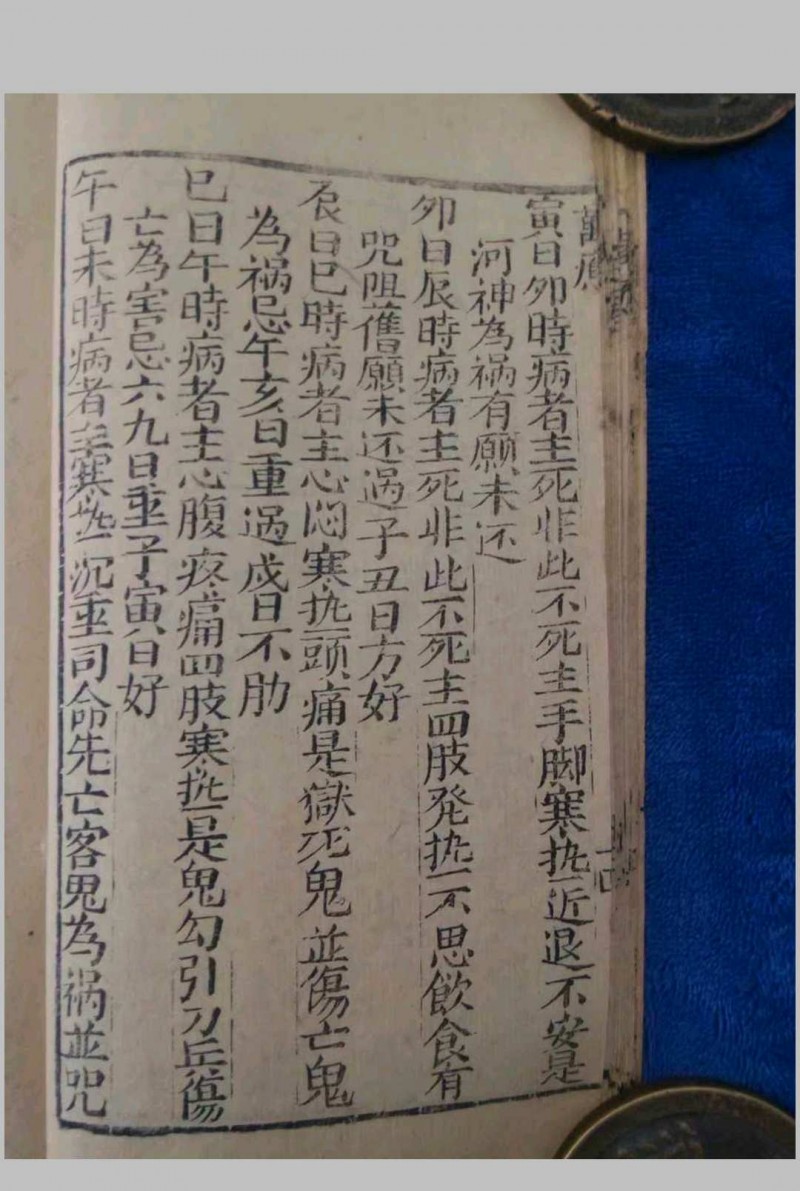 寅日夘時病者主死非此不死主手脚寒热近退不安是
河神為祸有願未还
夘日辰時病者主死非此不死主四肢発热不思飲食有
咒咀舊願未还過子丑日方好
辰日巳時病者主心悶寒热頭痛是獄死鬼並傷亡鬼
為祸忌午亥日重過戍日不肋
巳日午時病者主心腹疼痛四肢寒热是鬼勾引刀兵傷
亡為害忌六九日重子寅日好
午日未時病者主寒热沉重司命先亡客鬼為祸並咒